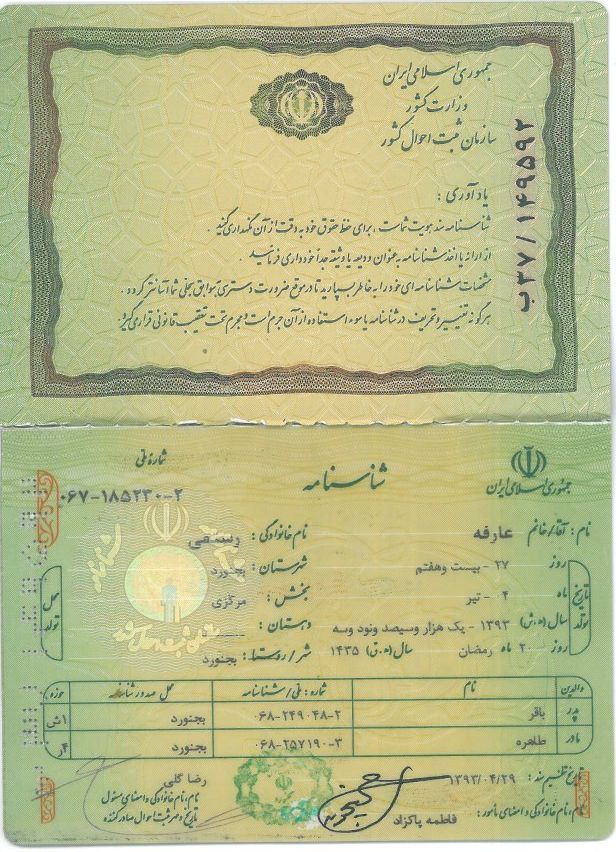 جمهوری اسلامی ایران
وزارت کشور
سازمان ثبت احوال کشور
ب۳۷/۱۴۹۵۹۲
یادآوری :
شناسنامه سند هویت شماست ، برای حفظ حقوق خود به دقت از آن نگهداری کنید .
از ارائه یا اخذ شناسنامه به عنوان ودیعه یا وثیقه جداً خودداری فرمائید .
مشخصات شناسنامه ای خود را به خاطر بسپارید تا در موقع ضرورت دسترسی به سوابق سجلی شما آسانتر گردد .
هرگونه تغییر و تحریف در شناسنامه یا سوء استفاده از آن جرم است و مجرم تحت تعقیب قانونی قرار می گیرد .
جمهوری اسلامی ایران
شناسنامه
شماره ملی
۰۶۷-۱۸۵۲۳۰-۲
نام : آقا/خانم عارفه نام خانوادگی :
تاریخ تولد
روز ۲۷ - بیست وهفتم شهرستان : بجنورد
ماه ۴ - تیر بخش : مرکزی
سال (ه.ش) ۱۳۹۳ - یک هزار وسیصد ونود وسه دهستان : -----
روز ۲۰ ماه رمضان سال (ه.ق) ۱۴۳۵ شهر/روستا : بجنورد
محل تولد
والدین نام شماره : ملی/شناسنامه محل صدور شناسنامه حوزه
پدر باقر ۰۶۸-۲۴۹۰۴۸-۲ بجنورد ۱ش
مادر طاهره ۰۶۸-۲۵۷۱۹۰-۳ بجنورد ۴ر
تاریخ تنظیم سند : ۱۳۹۳/۰۴/۲۹
نام، نام خانوادگی و امضای مأمور : فاطمه پاکزاد
رضا گلی
نام، نام خانوادگی و امضای مسئول
تاریخ و مهر ثبت احوال صادر کننده